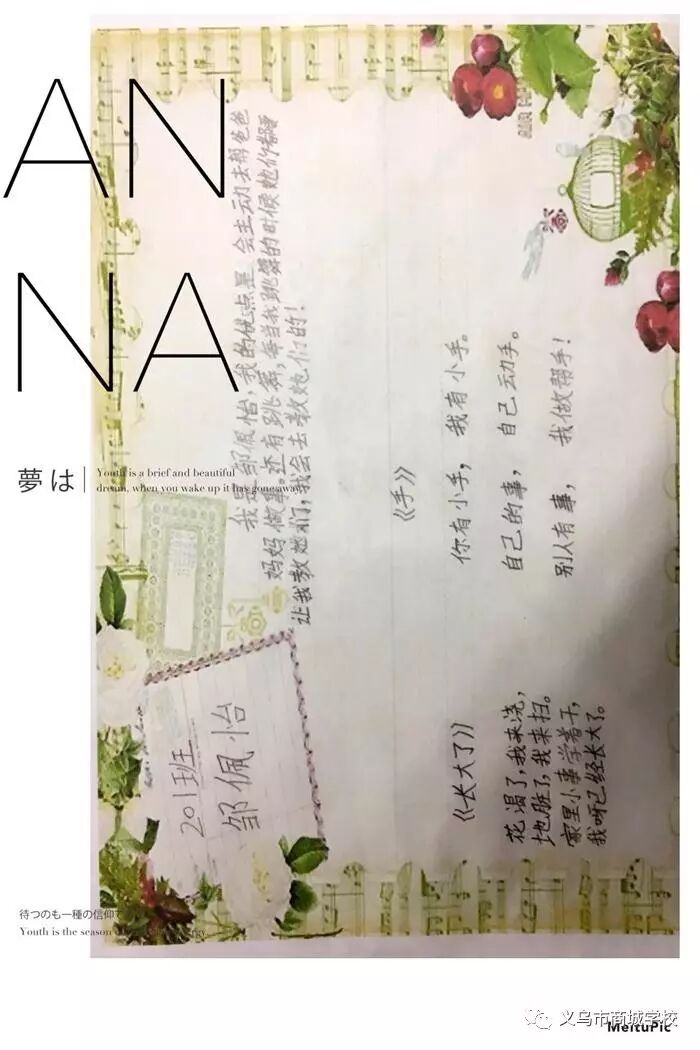 AN
NA
夢は
Youth is a brief and beautiful
dream, when you wake up it has gone away
我是邹佩怡,我的优点是 会主动去帮爸爸
妈妈做事。还有跳舞,每当我跳舞的时候她们都要
让我教她们,我会去教她们的!
《手》
你有小手,我有小手。
自己的事,自己动手。
别人有事,我做帮手!
201班
邹佩怡
《长大了》
花渴了,我来浇,
地脏了,我来扫。
家里小事学着干,
我呀已经长大了。
待つのも一種の信仰
Youth is the season
义乌市商城学校
MeituPic